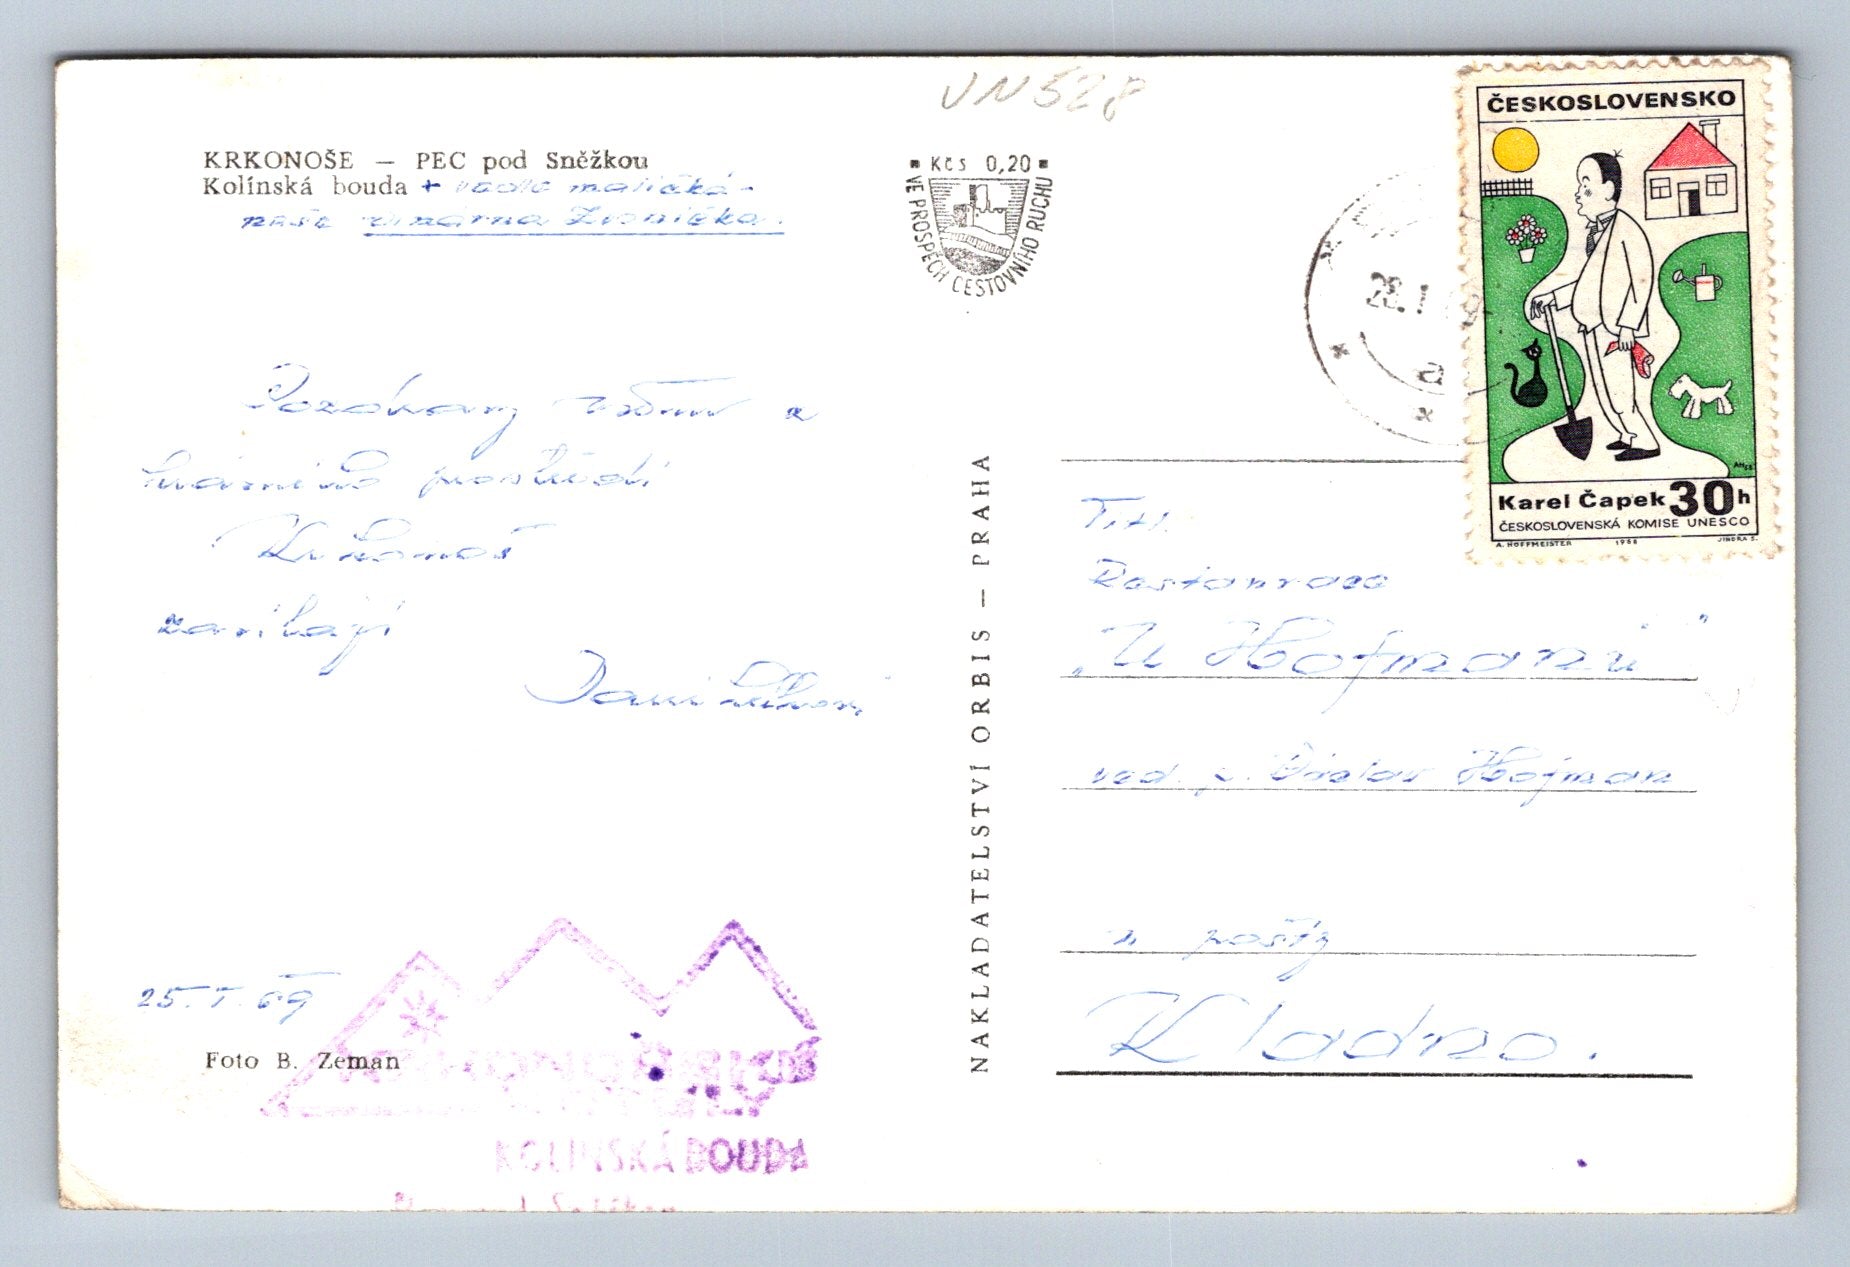 VN528
KRKONOŠE — PEC pod Sněžkou
Kolínská bouda + vedle maličká -
naše vinárna Zvonička.
Kčs 0,20
VE PROSPĚCH CESTOVNÍHO RUCHU
28. 1.
ČESKOSLOVENSKO
Karel Čapek 30h
ČESKOSLOVENSKÁ KOMISE UNESCO
A. HOFFMEISTER 1968 JINDRA S.
Pozdravy z
prostředí
Krkonoš
zasílají
25. I. 69
Foto B. Zeman
KOLÍNSKÁ BOUDA
NAKLADATELSTVÍ ORBIS — PRAHA
Titl.
Restaurace
„U Hofmanů"
ved. p. Hofman
u pošty
Kladno.